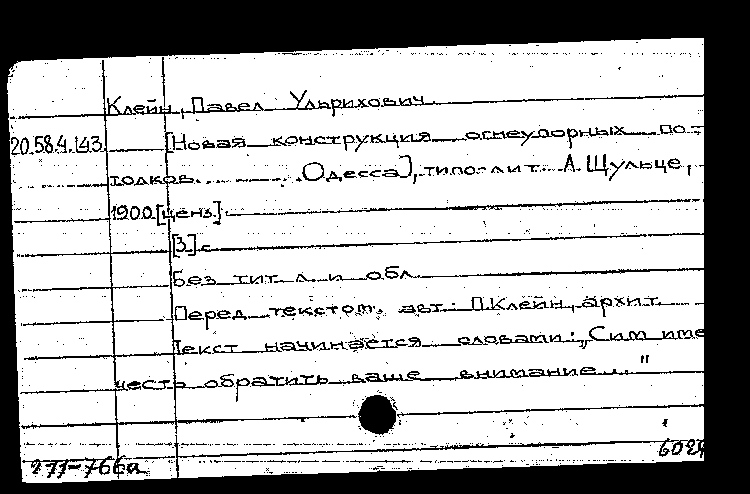 Клейн, Павел Ульрихович
20.58.4.143. [Новая конструкция огнеупорных по-
толков. Одесса], типо-лит. А. Шульце,
1900 [ценз.].
[3] с.
Без тит. л. и обл.
Перед текстом. авт.: П. Клейн, архит.
Текст начинается словами: „Сим име
честь обратить ваше внимание..."
277-766а